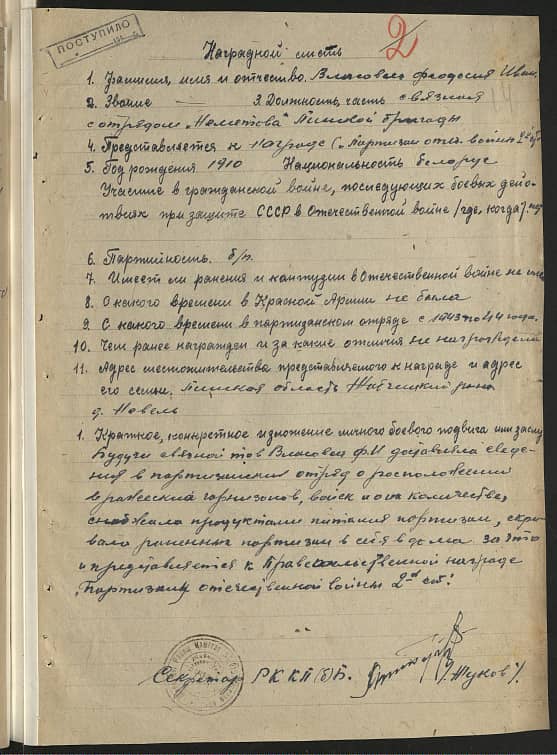 ПОСТУПИЛО
2
Наградной листъ
1. Фамилия, имя и отчество. Феодосия Иван
2. Звание — 3. Должность, часть связная
с отрядом Пинской бригады
4. Представляется к награде
5. Год рождения 1910 Национальность белорус
Участие в гражданской войне, последующих боевых дей-
твиях при защите СССР и Отечественной войне /где, когда/.
6. Партийность. б/п.
7. Имеет ли ранения и контузии в Отечественной войне не
8. С какого времени в Красной Армии не была
9. С какого времени в партизанском отряде с 1943 по 44 года.
10. Чем ранее награжден и за какие отличия не
11. Адрес местожительства представляемого к награде и адрес
его семьи. Пинская область Жабчицкий
д. Новель
1. Краткое, конкретное изложение личного боевого подвига или заслу
Будучи связной тов Ф.И доставляла сведе-
ния в партизанский отряд о расположении
вражеских гарнизонов, войск и о их количестве,
снабжала продуктами питания партизан, скры-
вала раненных партизан в себя в дома. За это
и представляется к Правительственной награде
"Партизану отечественной войны 2ой ст."
Секретар РК КП(б)Б. /Жуков/.